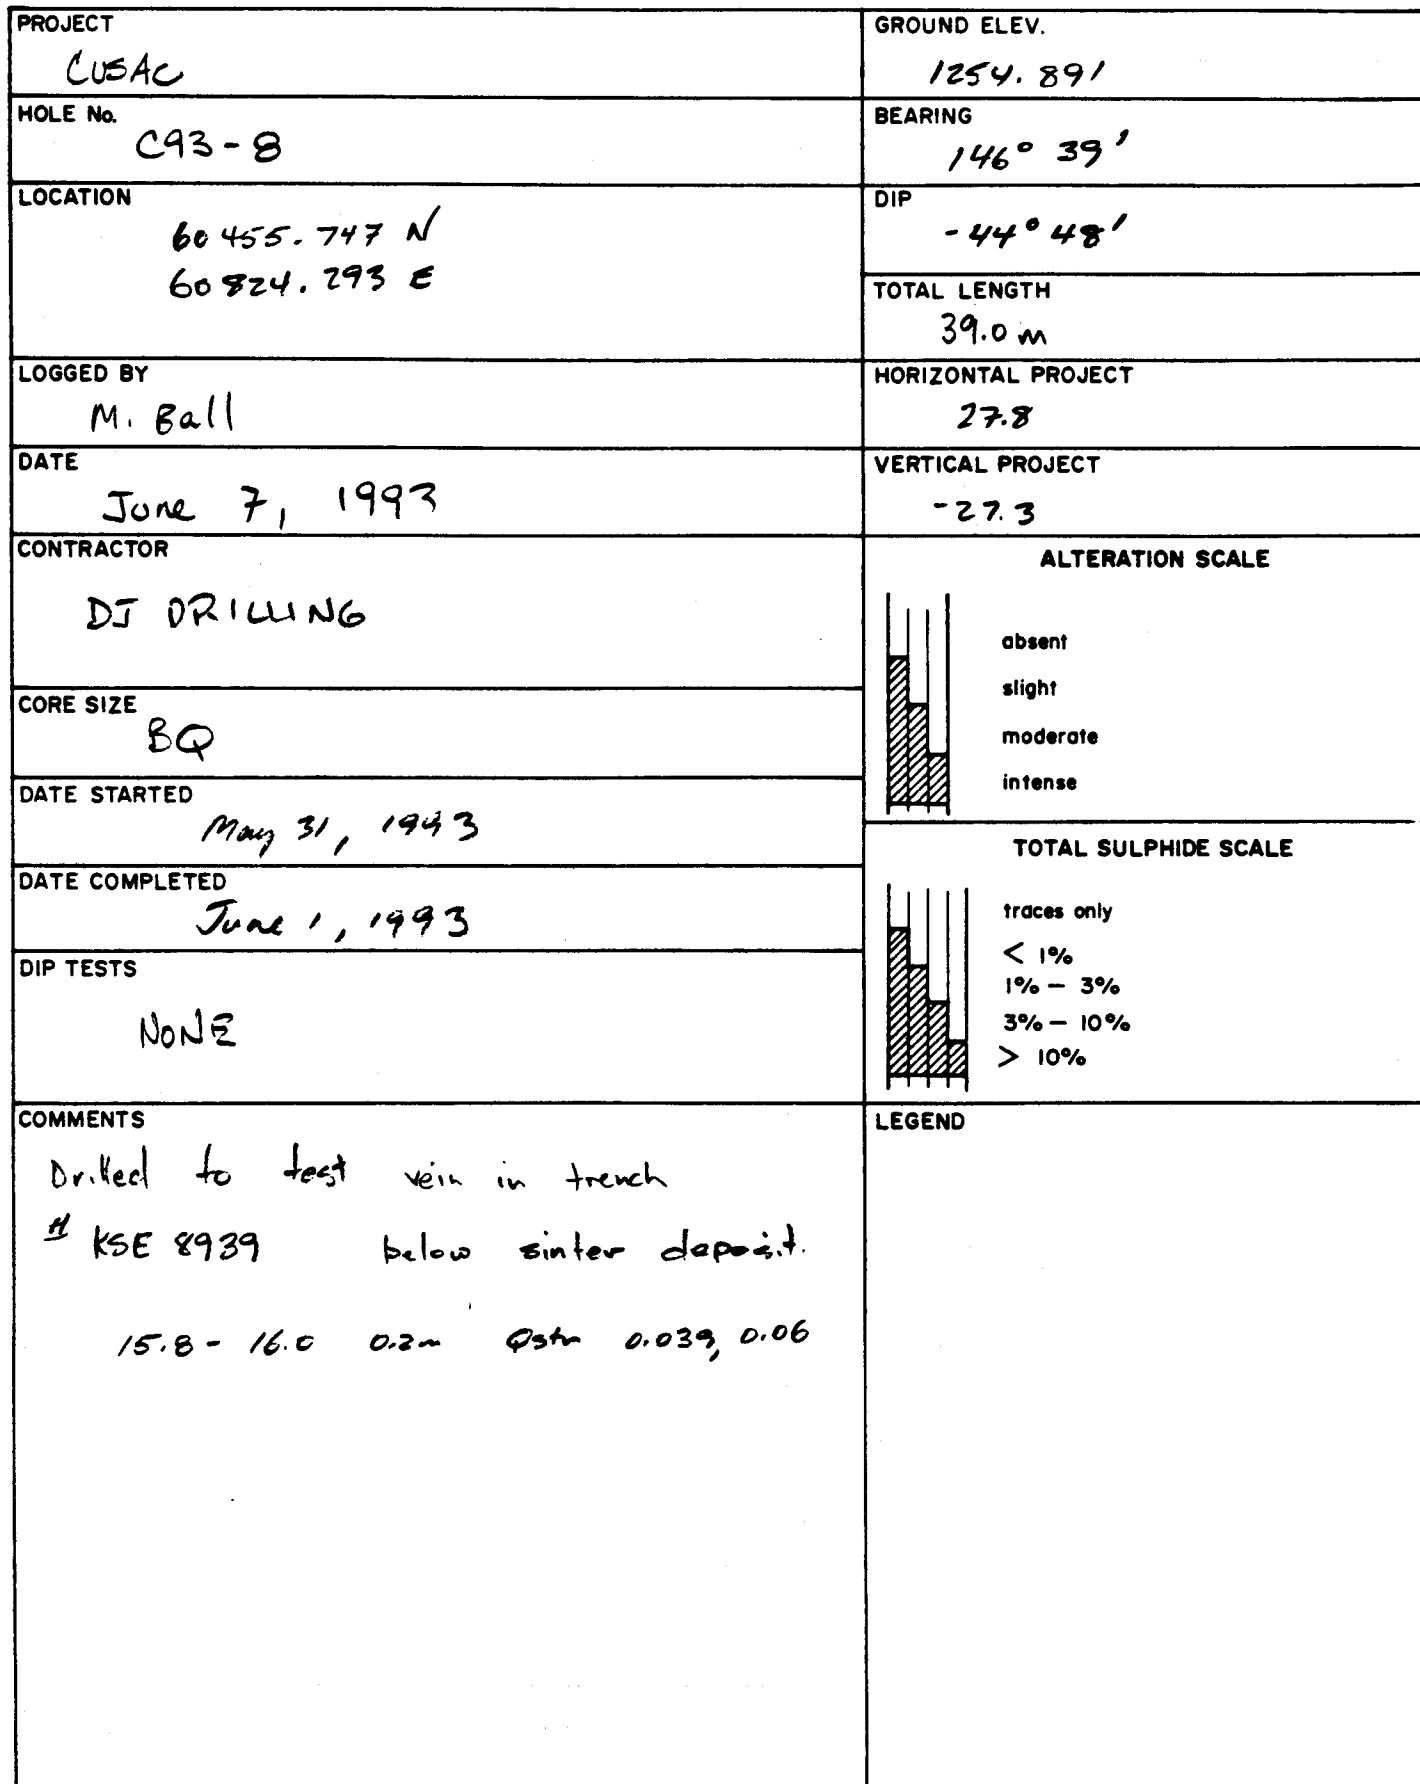 PROJECT
CUSAC
HOLE No.
C93-8
LOCATION
60 455.747 N
60 824.293 E
LOGGED BY
M. Ball
DATE
June 7, 1993
CONTRACTOR
DJ DRILLING
CORE SIZE
BQ
DATE STARTED
May 31, 1993
DATE COMPLETED
June 1, 1993
DIP TESTS
NONE
COMMENTS
Drilled to test vein in trench
# KSE 8939 below sinter deposit.
15.8 - 16.0 0.2m Qstr 0.039, 0.06
GROUND ELEV.
1254.891
BEARING
146° 39'
DIP
-44° 48'
TOTAL LENGTH
39.0 m
HORIZONTAL PROJECT
27.8
VERTICAL PROJECT
-27.3
ALTERATION SCALE
absent
slight
moderate
intense
TOTAL SULPHIDE SCALE
traces only
< 1%
1% – 3%
3% – 10%
> 10%
LEGEND